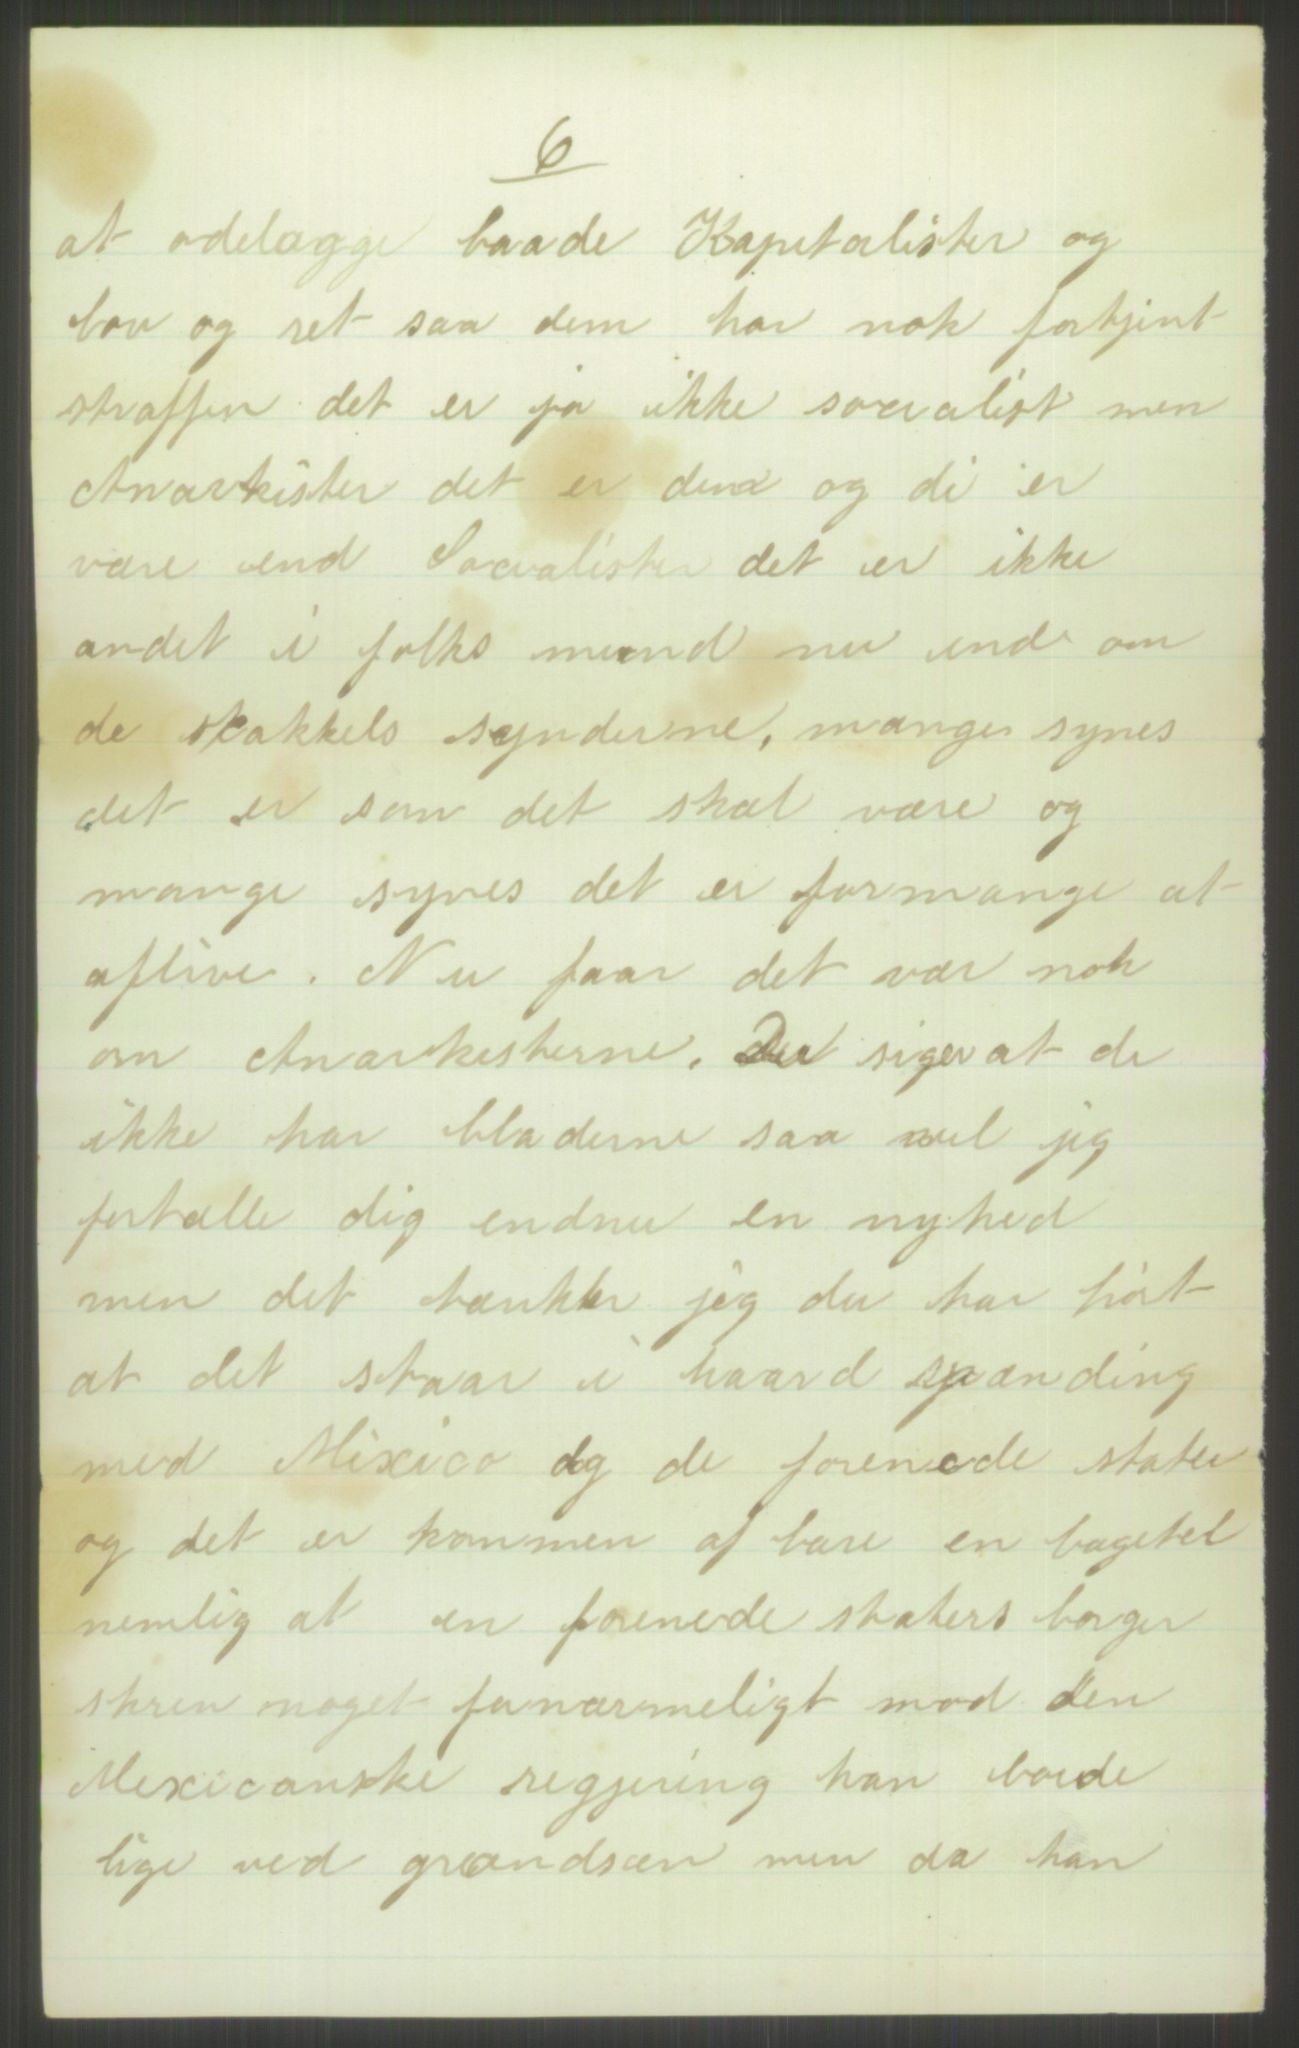 6
at ødelægge baade Kapitalister og
lov og ret saa dem har nok fortjent
straffen det er jo ikke socialist men
Anarkister det er dem og di er
være end Socialister det er ikke
andet i folks mund nu end om
de stakkels synderne, mange synes
det er som det skal være og
mange synes det er formange at
aflive. Nu faar det vær nok
om Anarkesterne. Du siger at de
ikke har bladerne saa vel jeg
fortælle dig endnu en nyhed
men det tænkker jeg du har hørt
at det staar i haard spænding
med Mixico og de forenede stater
og det er kommen af bare en bagetel
nemlig at en forenede staters borger
skrev noget fornærmeligt mod den
Mexicanske regjering han boede
lige ved grændsen men da han